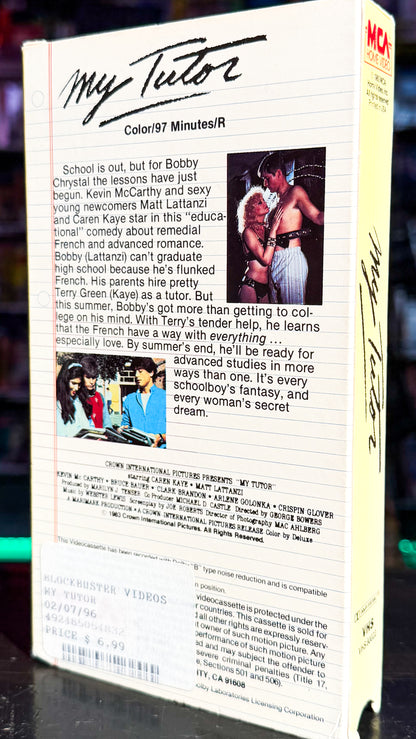 My Tutor
Color/97 Minutes/R
School is out, but for Bobby
Chrystal the lessons have just
begun. Kevin McCarthy and sexy
young newcomers Matt Lattanzi
and Caren Kaye star in this “educa-
tional” comedy about remedial
French and advanced romance.
Bobby (Lattanzi) can't graduate
high school because he's flunked
French. His parents hire pretty
Terry Green (Kaye) as a tutor. But
this summer, Bobby's got more than getting to col-
lege on his mind. With Terry's tender help, he learns
that the French have a way with everything ...
especially love. By summer's end, he'll be ready for
advanced studies in more
ways than one. It's every
schoolboy's fantasy, and
every woman's secret
dream.
CROWN INTERNATIONAL PICTURES PRESENTS "MY TUTOR"
starring CAREN KAYE • MATT LATTANZI
KEVIN Mc CARTHY • BRUCE BAUER • CLARK BRANDON • ARLENE GOLONKA • CRISPIN GLOVER
Produced by MARILYN J. TENSER Co Producer MICHAEL D. CASTLE Directed by GEORGE BOWERS
Music by WEBSTER LEWIS Screenplay by JOE ROBERTS Director of Photography MAC AHLBERG
A MARIMARK PRODUCTION • A CROWN INTERNATIONAL PICTURES RELEASE Color by Deluxe
© 1983 Crown International Pictures. All Rights Reserved.
This Videocassette has been recorded with "B" type noise reduction and is compatible
n position.
videocassette is protected under the
r countries. This cassette is sold for
d all other rights are expressly reserv-
t owner of such motion picture. Any
performance of such motion picture
d and may subject the offender to
severe criminal penalties (Title 17,
, Sections 501 and 506).
ITY, CA 91608
Dolby Laboratories Licensing Corporation
BLOCKBUSTER VIDEOS
MY TUTOR
02/07/96
PRICE $ 6.99
MCA
HOME VIDEO
My Tutor
VHS